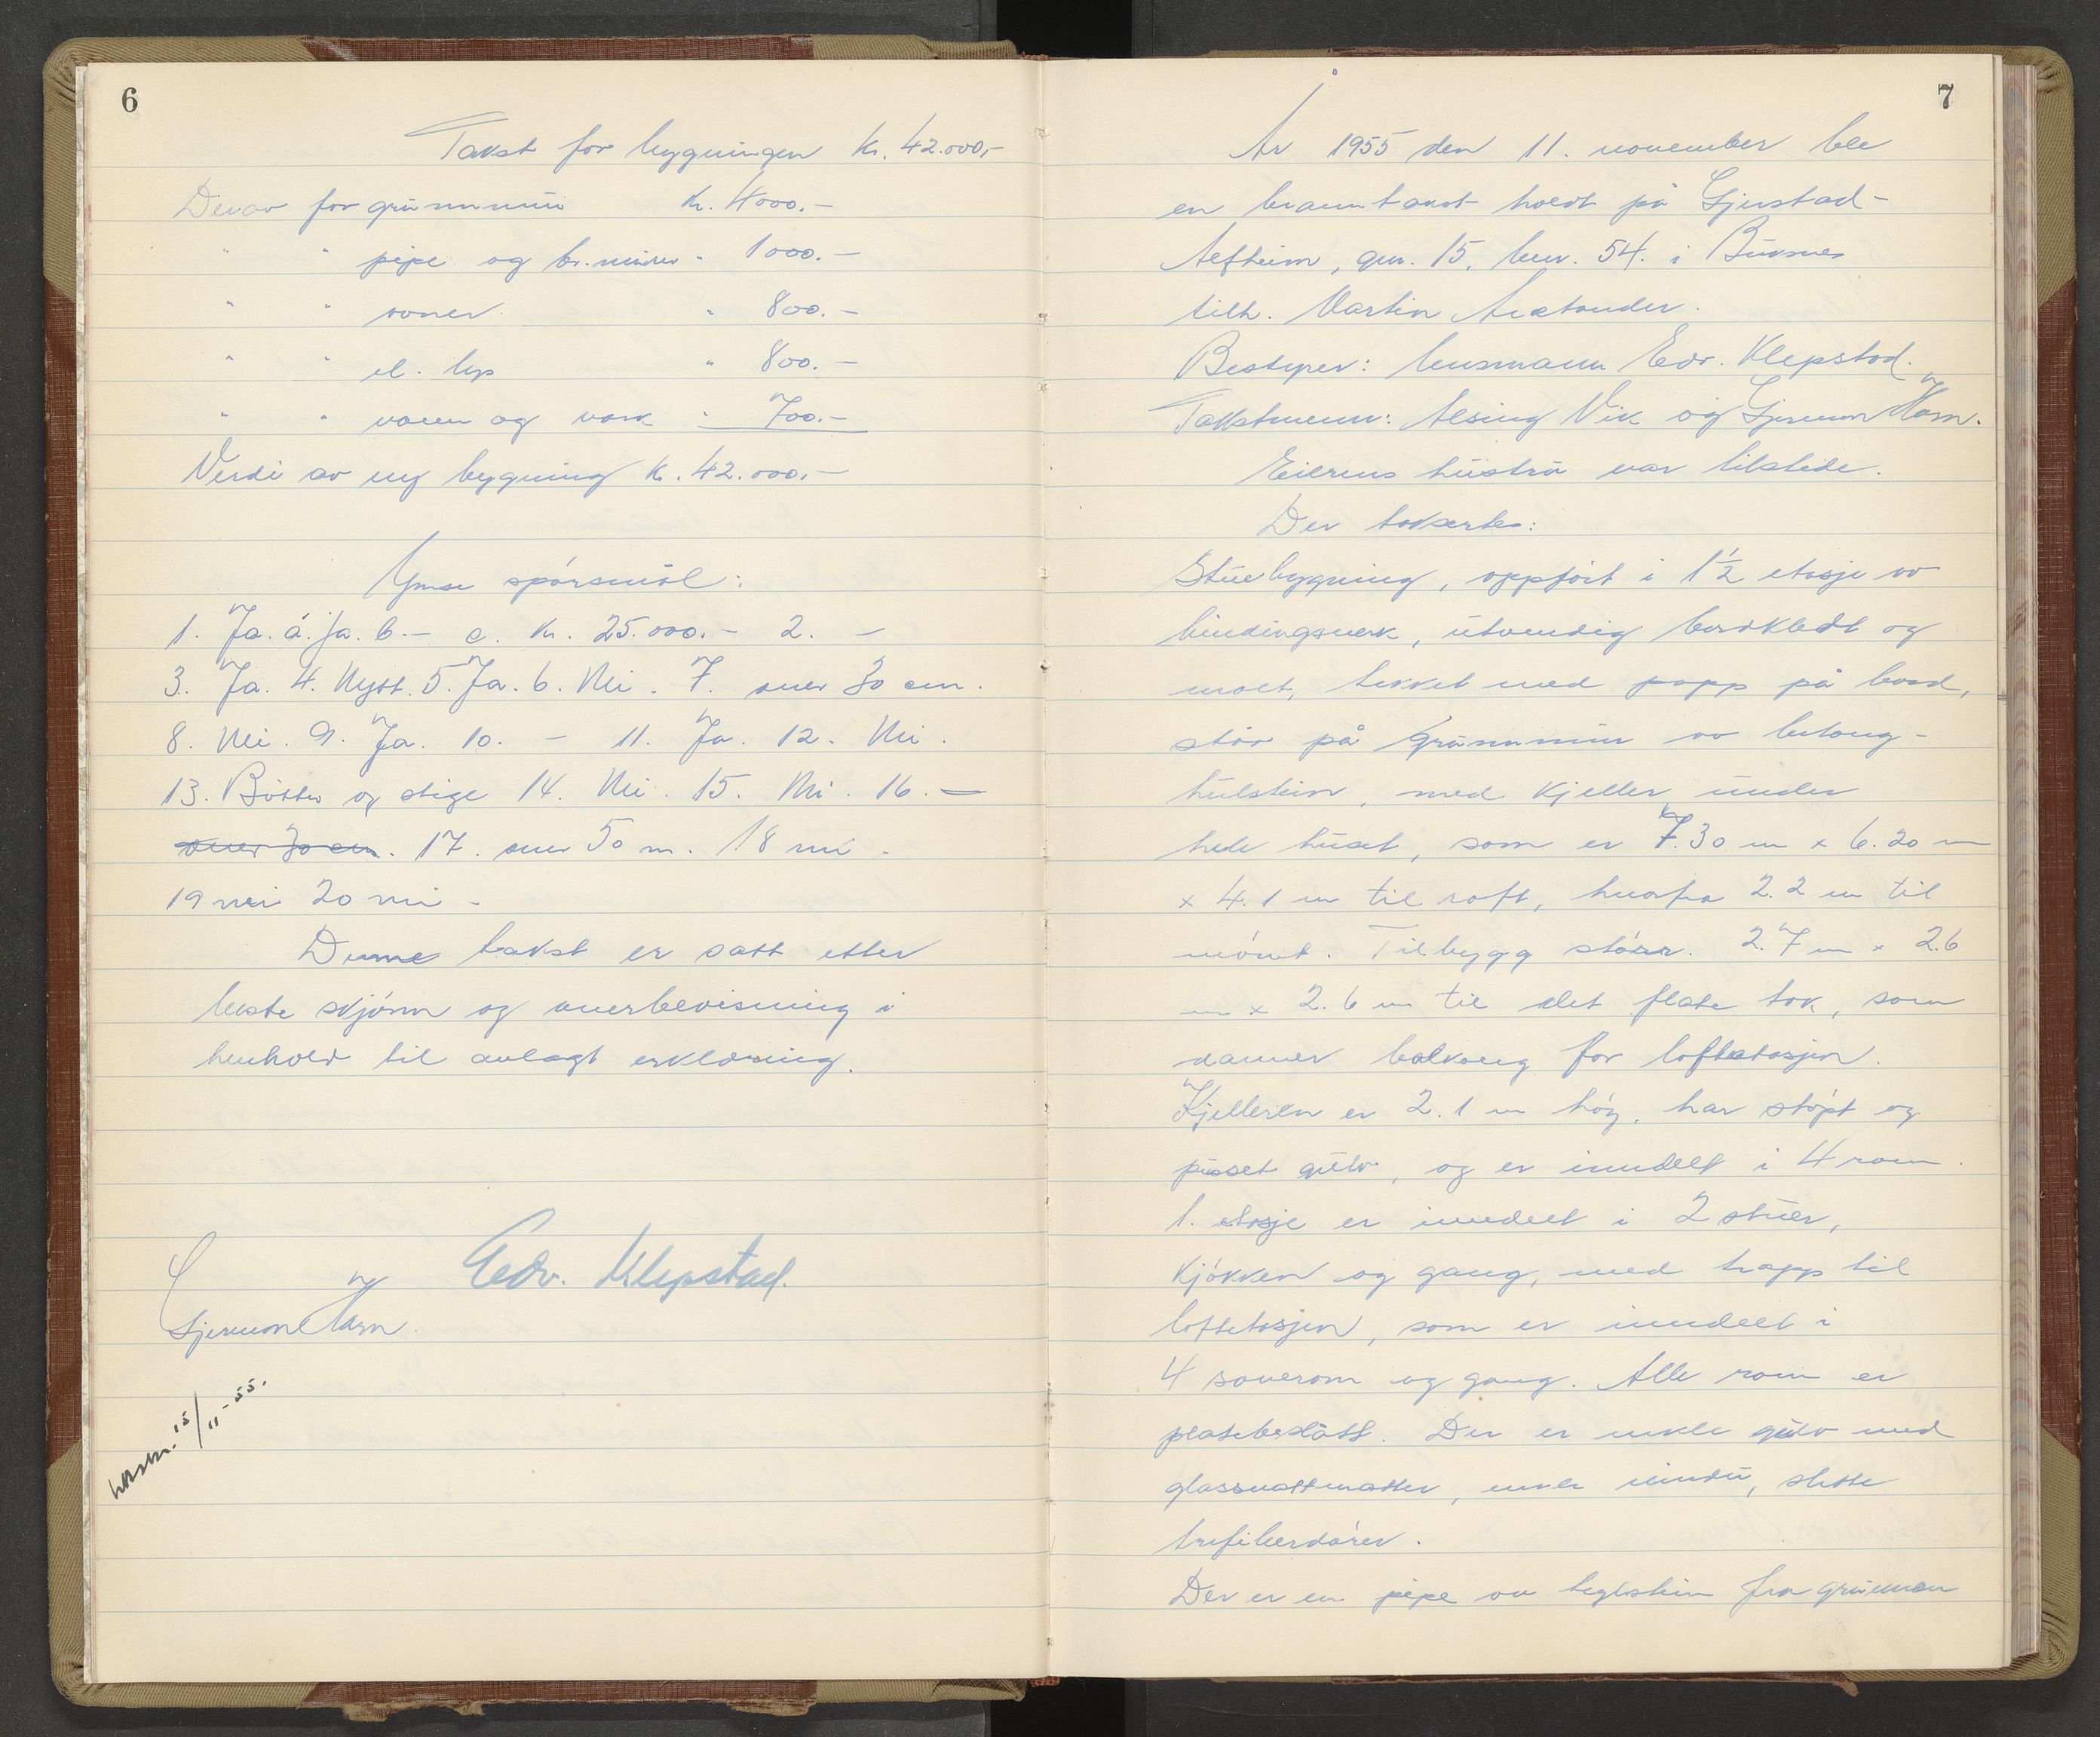 6
Takst for bygningen kr. 42.000,-
Derav for grunnmur kr. 4000.-
" " pipe og br.murer " 1000.-
" " ovner " 800.-
" " el. lys " 800.-
" " vann og vask " 700.-
Verdi av ny bygning kr. 42.000.-
Ymse spørsmål:
1. Ja. a. ja. b. - c. kr. 25.000.- 2. -
3. Ja. 4. Nytt. 5. Ja. 6. Nei. 7. over 30 cm.
8. Nei. 9. Ja. 10. - 11. Ja. 12. Nei.
13. Bøtter og stige 14. Nei. 15. Nei. 16. -
over 30 cm. 17. over 50 m. 18 nei -
19 nei 20 nei -
Denne takst er satt etter
beste skjønn og overbevisning i
henhold til avlagt erklæring.
Edv. Klepstad.
Gjermon Harn.
15/11-55.
7
År 1955 den 11. november ble
en branntakst holdt på Gjerstad-
, gnr. 15, bnr. 54. i Buksnes
tilh. Martin
Bestyrer: lensmann Edv. Klepstad.
Takstmenn: Alsing Vik og Gjermon Harn.
Eierens hustru var tilstede.
Der taksertes:
Stuebygning, oppført i 1½ etasje av
bindingsverk, utvendig bordkledt og
malt, tekket med papp på bord,
står på grunnmur av betong-
hulstein, med kjeller under
hele huset, som er 7.30 m x 6.20 m
x 4.1 m til raft, hvorfra 2.2 m til
mønet. Tilbygg større. 2.7 m x 2.6
m x 2.6 m til det flate tak, som
danner balkong for loftetasjen.
Kjelleren er 2.1 m høg, har støpt og
pusset gulv, og er inndelt i 4 rom.
1. etasje er inndelt i 2 stuer,
kjøkken og gang, med trapp til
loftetasjen, som er inndelt i
4 soverom og gang. Alle rom er
platebeslått. Der er enkle gulv med
glassvattmatter, enkle vindu, slette
trefiberdører.
Der er en pipe av teglstein fra grunnen